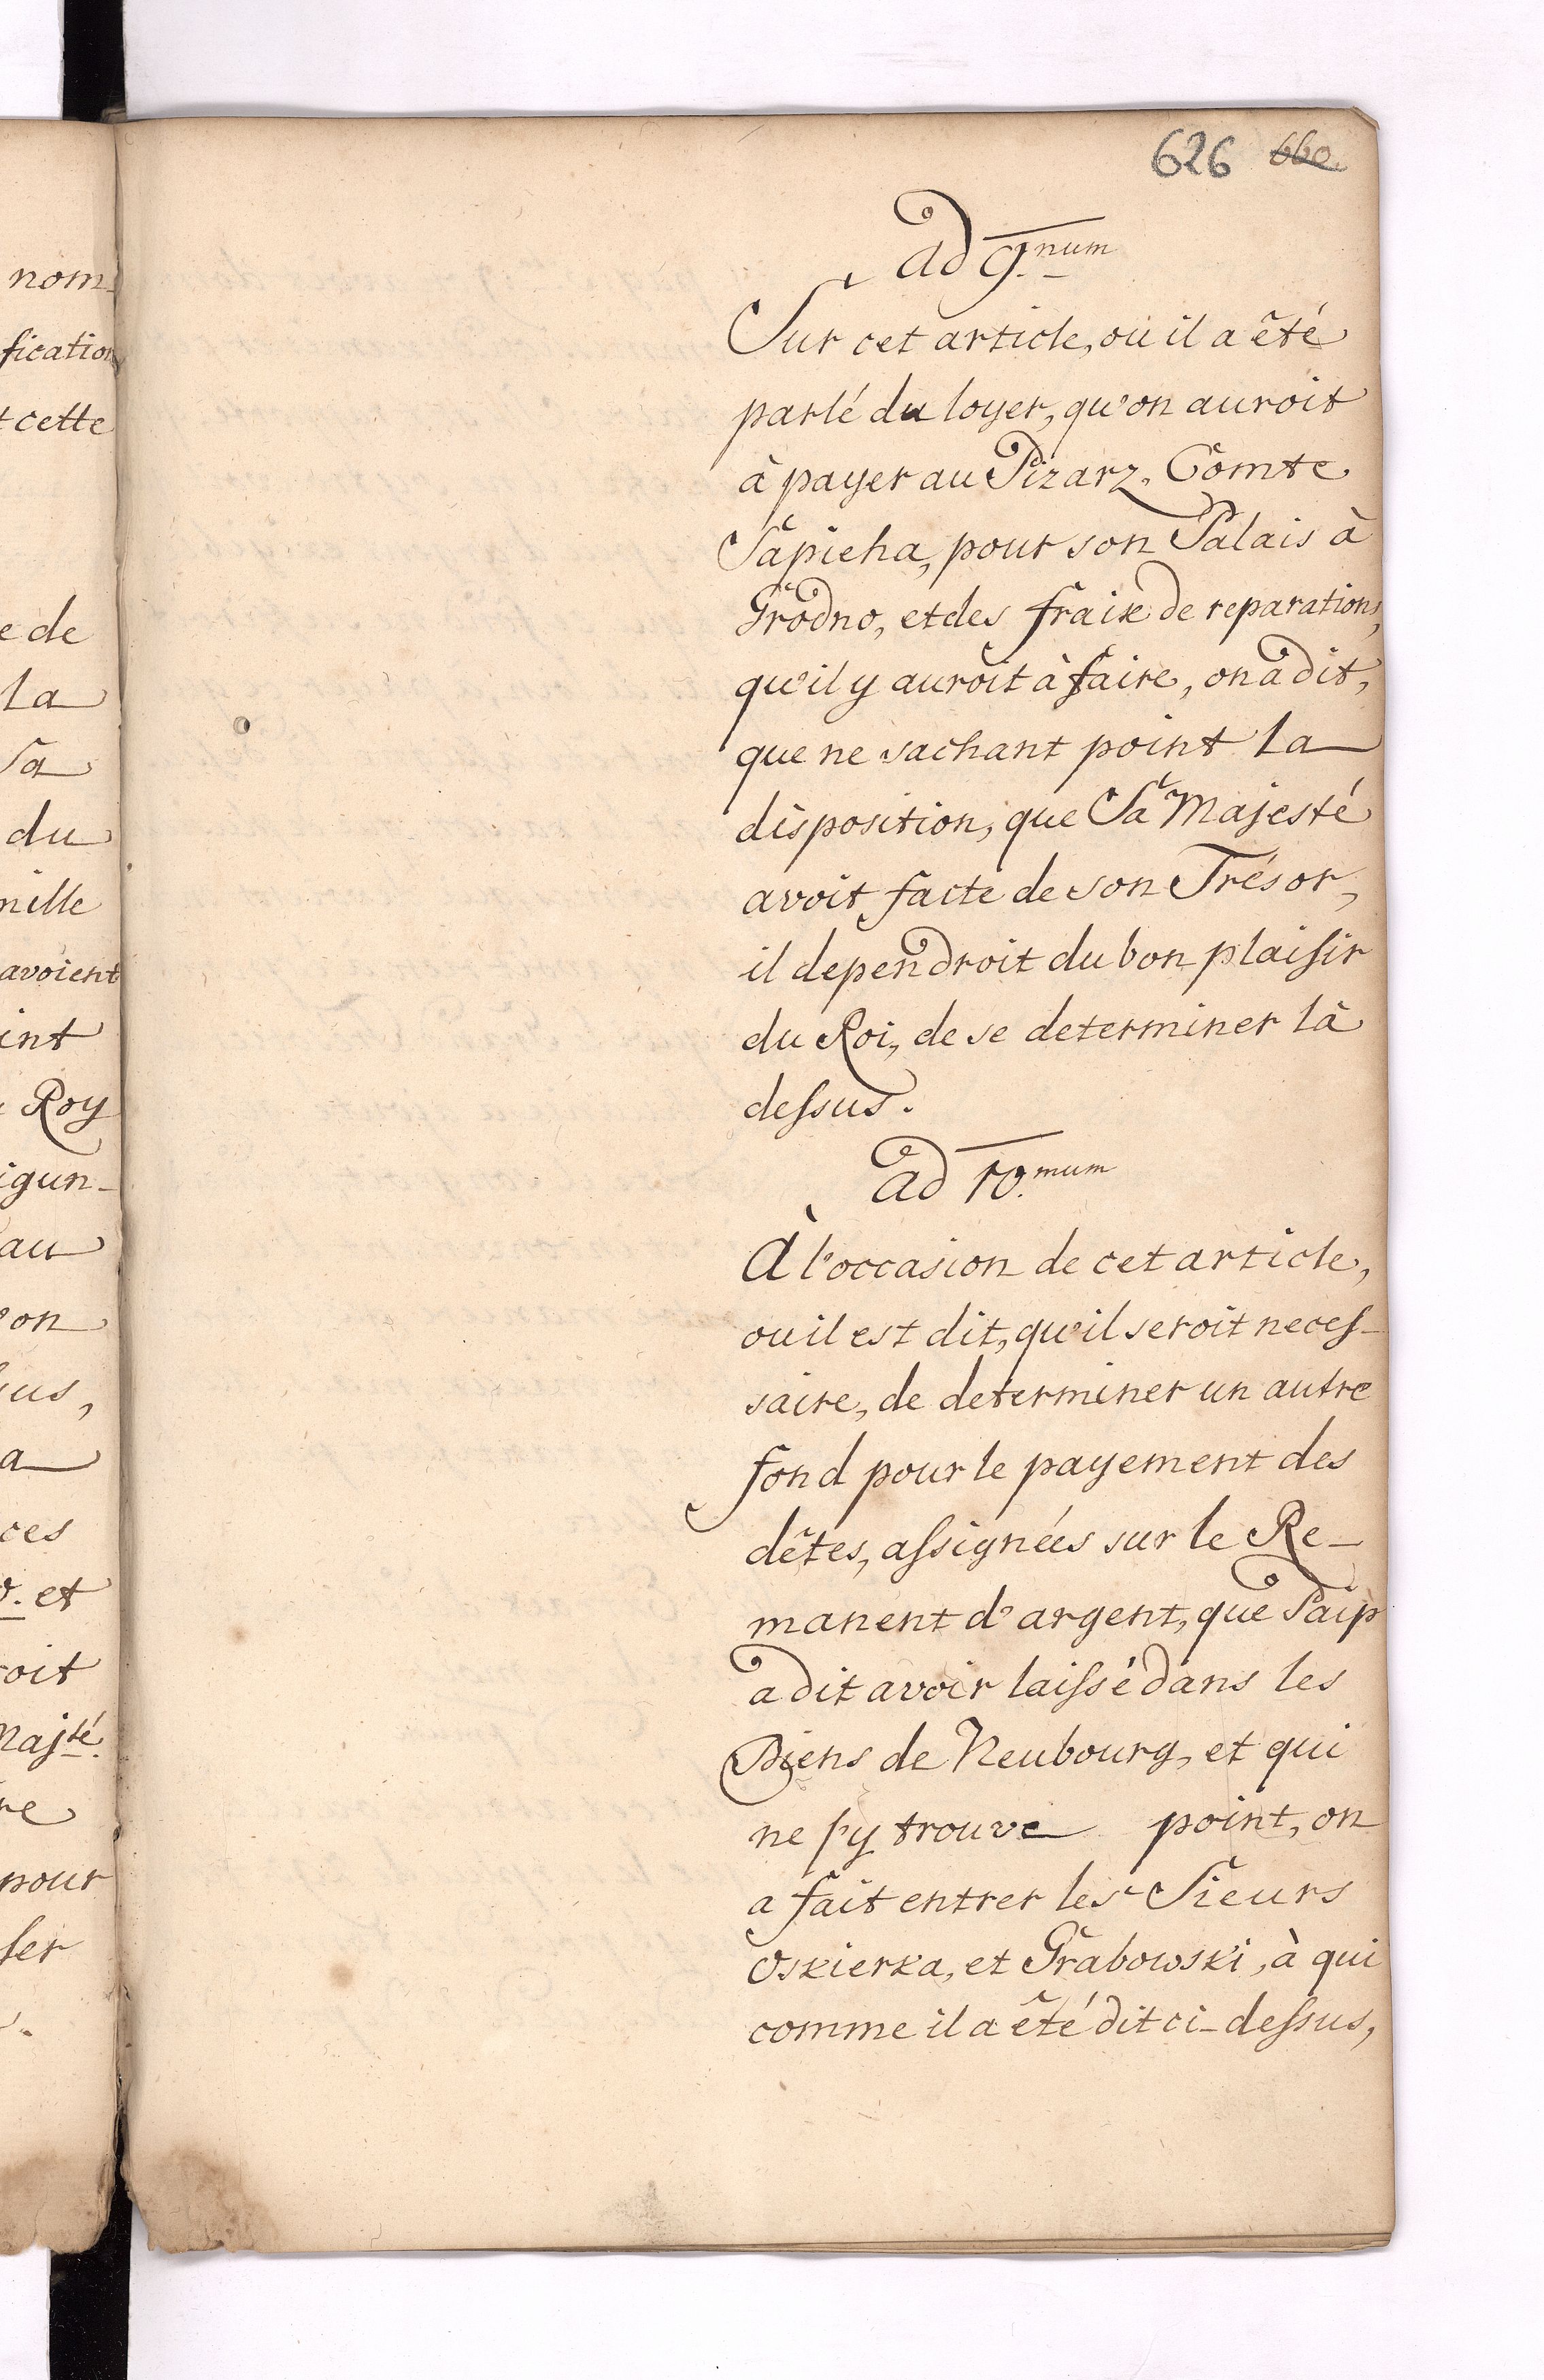 nom-
fication
t cette
e de
la
Sa
du
mille
avoient
int
Roy
igun-
au
on
sus,
a
ces
et
roit
Majté.
re
pour
ser
626 660.
ad 9.num
Sur cet article, ou il a êté
parlé du loyer, qu'on auroit
à payer au Pizarz. Comte
Sapieha, pour son Palais à
Grodno, et des fraix de reparations,
qu'il y auroit à faire, on a dit,
que ne sachant point la
disposition, que Sa Majesté
avoit faite de son Trésor,
il dependroit du bon plaisir
du Roi, de se determiner là
dessus.
ad 10.mum
À l'occasion de cet article,
ou il est dit, qu'il seroit neces-
saire, de determiner un autre
fond pour le payement des
dêtes, assignées sur le Re-
manent d'argent, que Paip
a dit avoir laissé dans les
Biens de Neubourg, et qui
ne s'y trouve point, on
a fait entrer les Sieurs
Oskierka, et Grabowski, à qui
comme il a êté dit ci-dessus,